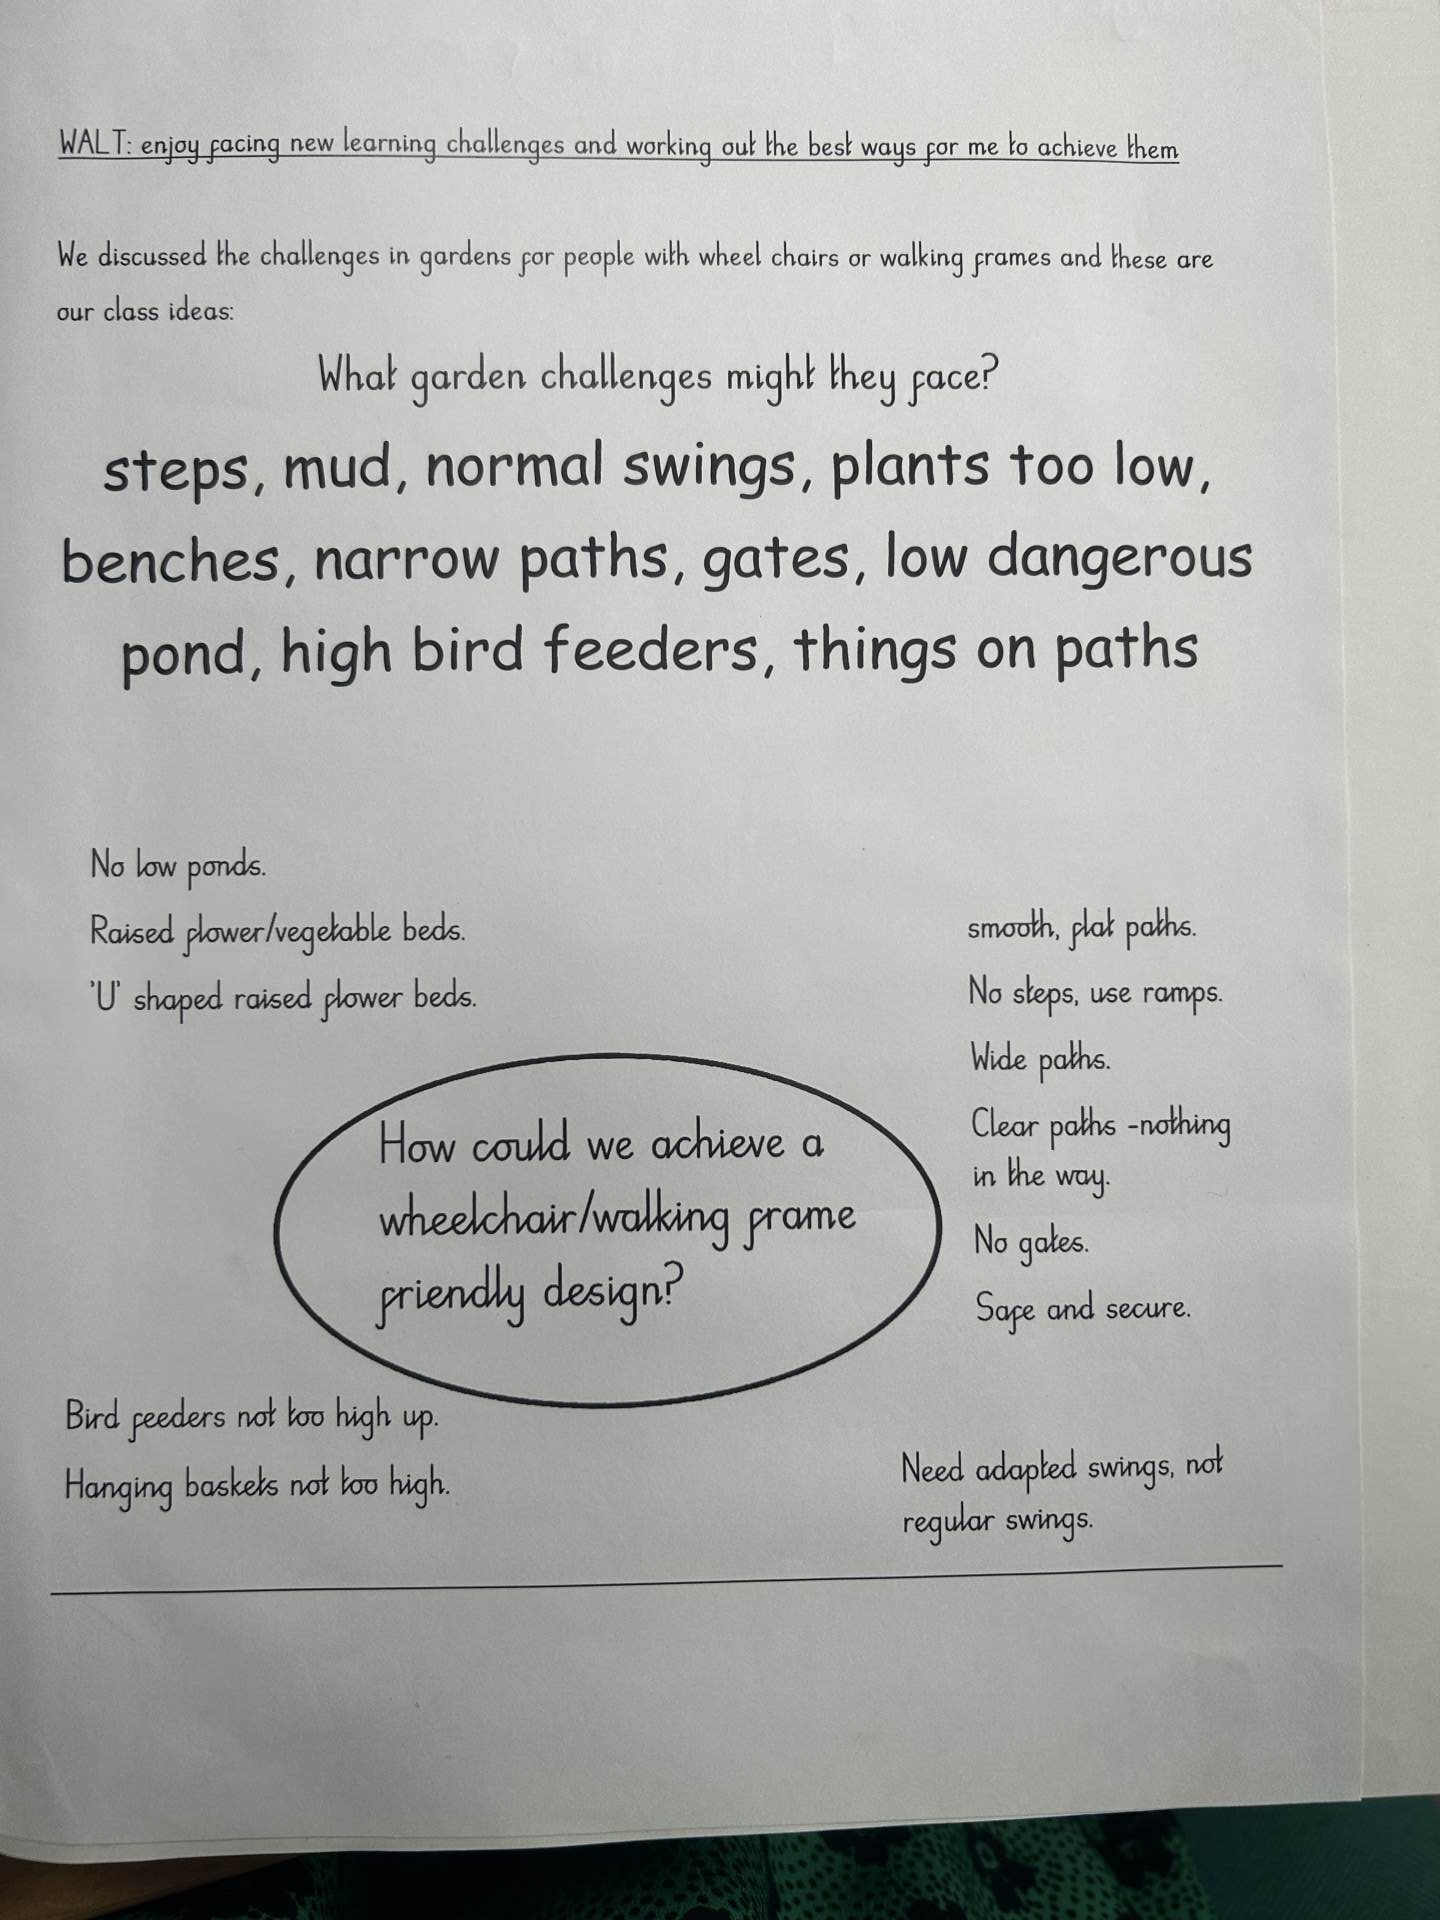 WALT: enjoy facing new learning challenges and working out the best ways for me to achieve them
We discussed the challenges in gardens for people with wheel chairs or walking frames and these are
our class ideas:
What garden challenges might they face?
steps, mud, normal swings, plants too low,
benches, narrow paths, gates, low dangerous
pond, high bird feeders, things on paths
No low ponds.
Raised flower/vegetable beds.
'U' shaped raised flower beds.
smooth, flat paths.
No steps, use ramps.
Wide paths.
Clear paths -nothing
in the way.
No gates.
Safe and secure.
How could we achieve a
wheelchair/walking frame
friendly design?
Bird feeders not too high up.
Hanging baskets not too high.
Need adapted swings, not
regular swings.